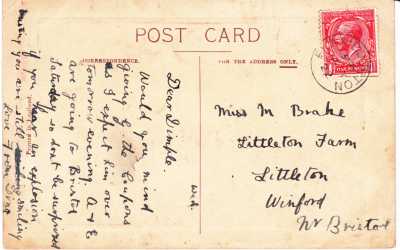 POST CARD
CORRESPONDENCE.
FOR THE ADDRESS ONLY.
Wed.
Dear Dimple.
Would you mind
giving G the Coupons
as I expect him over
tomorrow evening. A & E
are going to Bristol
Saturday so dont be surprised
if you hear an explosion
you are still smiling
Love from
Miss M Brake
Littleton Farm
Littleton
Winford
Nr Bristol